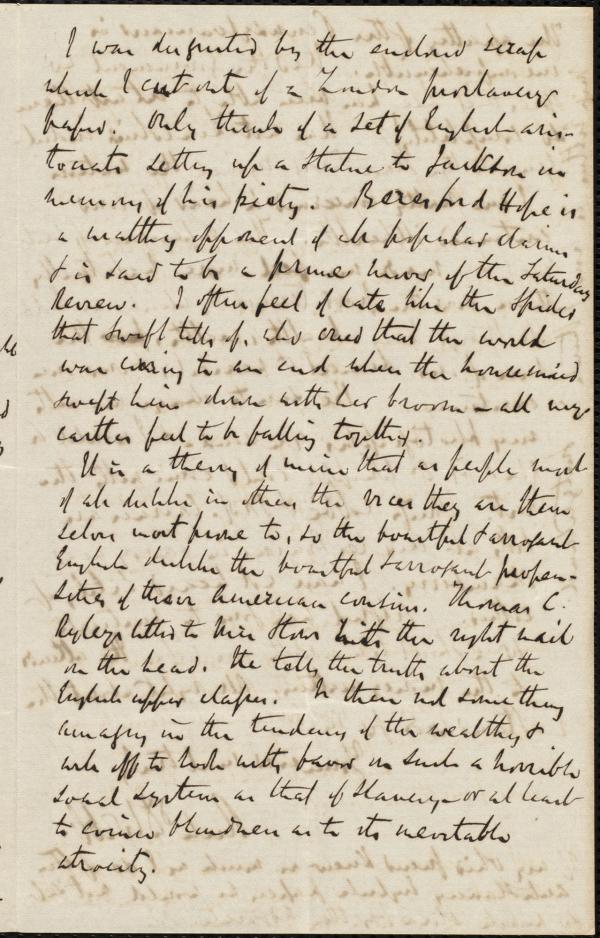 I was disgusted by the enclosed scrap
which I cut out of a London proslavery
paper. Only think of a set of English aris-
tocrats setting up a statue to Jackson in
memory of his piety. Beresford Hope is
a wealthy opponent of all popular claims
& is said to be a prime mover of the Saturday
Review. I often feel of late like the spider
that Swift tells of, who cried that the world
was coming to an end when the housemaid
swept him down with her broom - all my
earth feel to be falling together.
It is a theory of mine that as people most
of all dislike in others the vices they are them
selves most prone to, so the boastful & arrogant
English dislike the boastful & arrogant propen-
sities of their American cousins. Thomas C.
letter to Mrs Stowe hitts the right nail
on the head. He tells the truth about the
English upper classes. Is there not something
amazing in the tendency of the wealthy &
well off to look with favor on such a horrible
social system as that of Slavery - or at least
to blindness as to its inevitable
atrocity.